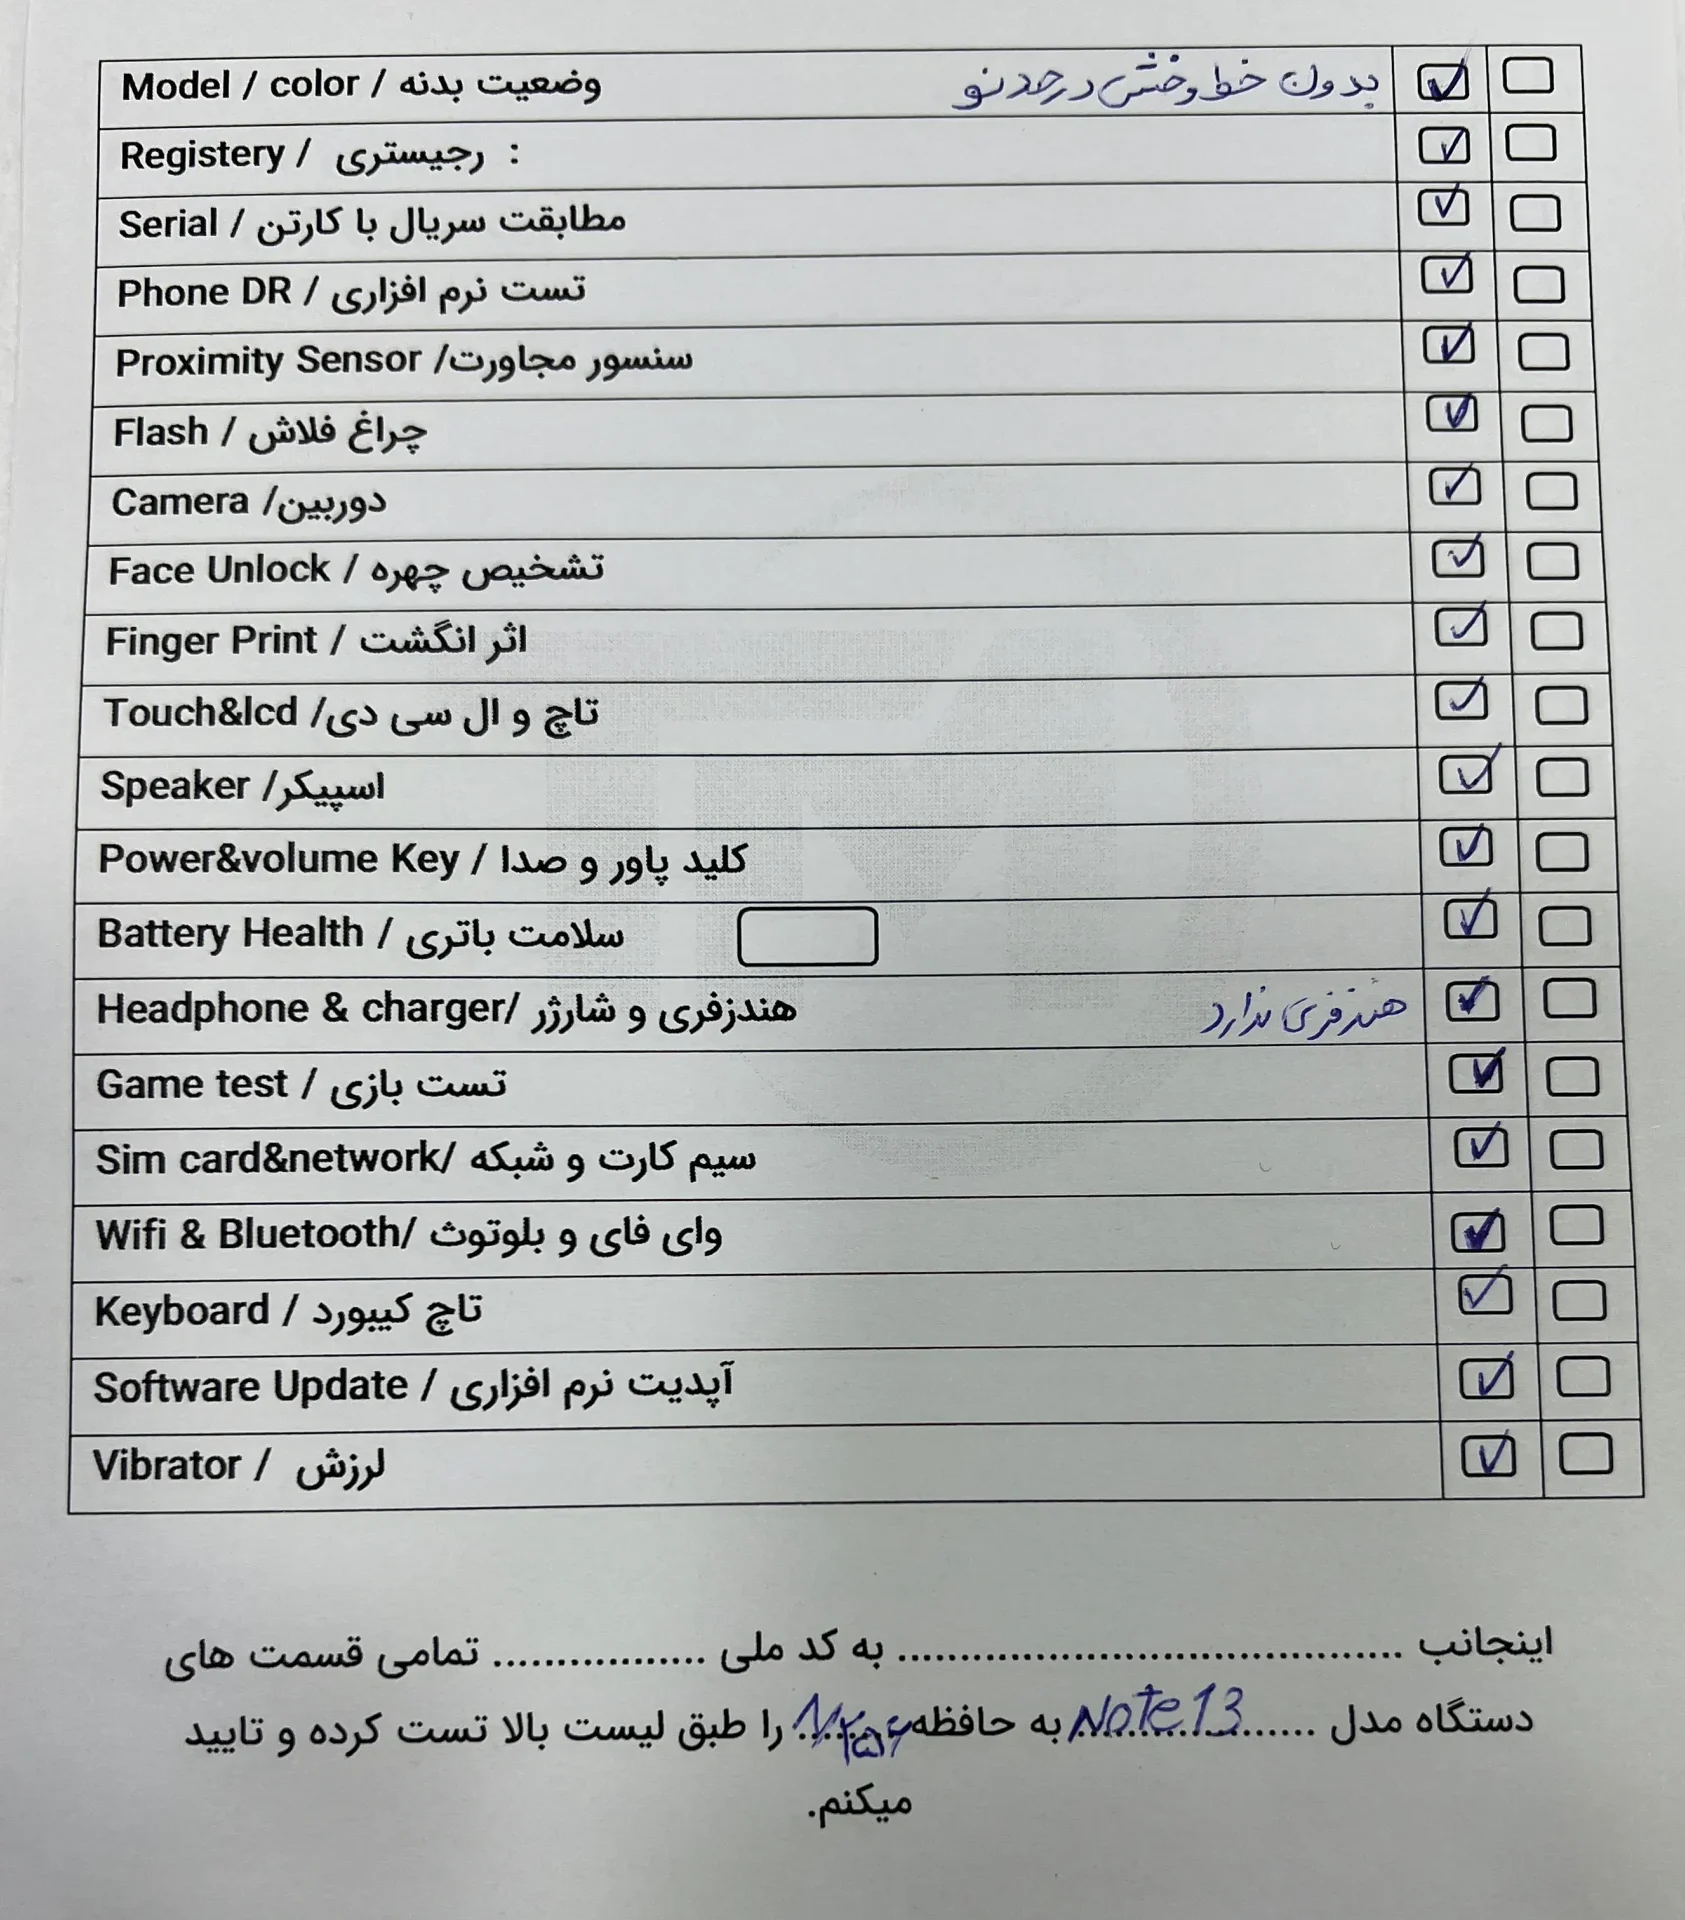 Model / color / وضعیت بدنه بدون خط وخش درحد نو
Registery / رجیستری :
Serial / مطابقت سریال با کارتن
Phone DR / تست نرم افزاری
Proximity Sensor /سنسور مجاورت
Flash / چراغ فلاش
Camera /دوربین
Face Unlock / تشخیص چهره
Finger Print / اثر انگشت
Touch&lcd /تاچ و ال سی دی
Speaker /اسپیکر
Power&volume Key / کلید پاور و صدا
Battery Health / سلامت باتری
Headphone & charger/ هندزفری و شارژر هندزفری ندارد
Game test / تست بازی
Sim card&network/ سیم کارت و شبکه
Wifi & Bluetooth/ وای فای و بلوتوث
Keyboard / تاچ کیبورد
Software Update / آپدیت نرم افزاری
Vibrator / لرزش
اینجانب ........................................ به کد ملی ................. تمامی قسمت های
دستگاه مدل Note 13 به حافظه ۲۵۶ را طبق لیست بالا تست کرده و تایید
میکنم.